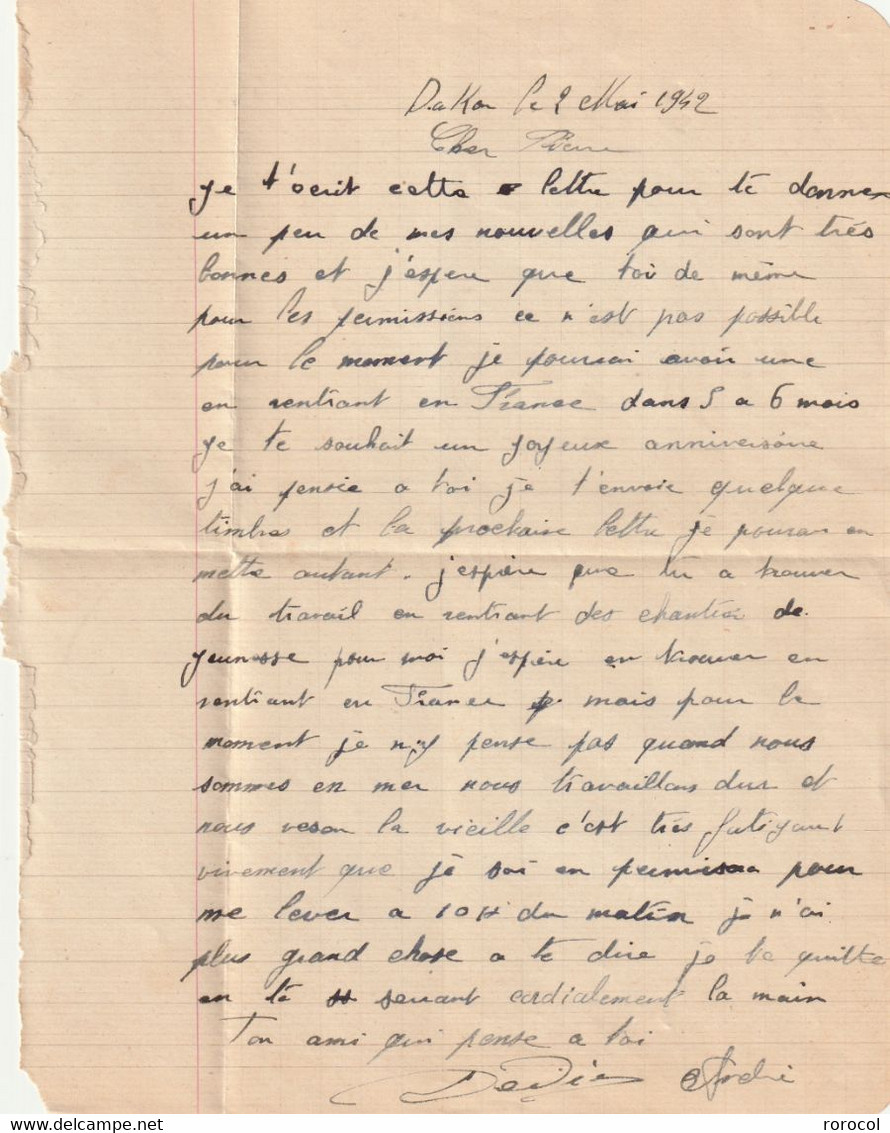 Dakar le 2 Mai 1942
Cher Pierre
je t'ecrit cette lettre pour te donner
un peu de mes nouvelles qui sont très
bonnes et j'espere que toi de même
pour les permissions ce n'est pas possible
pour le moment je pourrai avoir une
en rentrant en France dans 5 a 6 mois
je te souhait un joyeux anniversaire
j'ai pensée a toi je t'envoie quelque
timbres et la prochaine lettre je pourai en
mettre autant. j'espère que tu a trouver
du travail en rentrant des chantier de
jeunesse pour moi j'espère en trouver en
rentrant en France mais pour le
moment je n'y pense pas quand nous
sommes en mer nous travaillons dur et
nous la vieille c'est très fatigant
vivement que je soi en permission pour
me lever a 10 H du matin je n'ai
plus grand chose a te dire je te quitte
en te serrant cordialement la main
Ton ami qui pense a toi
André
www.delcampe.net
rorocol